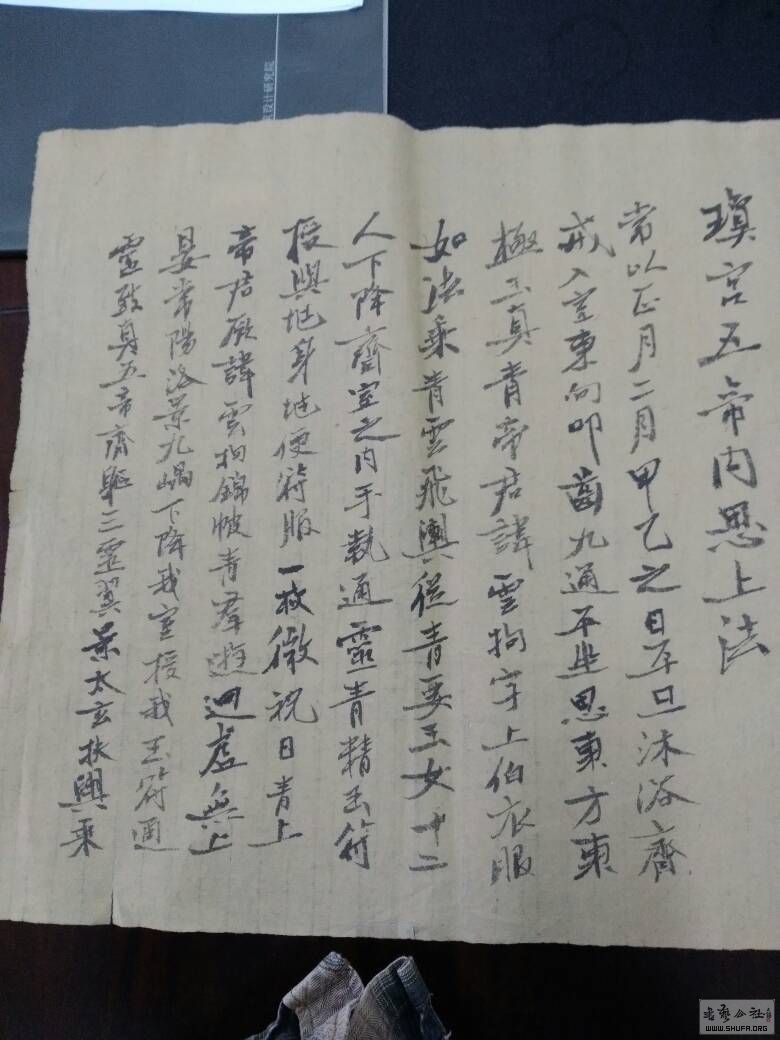 瓊宮五帝内思上法
常以正月二月甲乙之日平旦沐浴齋
戒入室東向叩齒九通平坐思東方東
極玉真青帝君諱雲拘字上伯衣服
如法乘青雲飛輿從青要玉女十二
人下降齋室之内手執通靈青精玉符
授與地身地便符服一枚微祝日青上
帝君厥諱雲拘錦帔青羣遊迴虛無上
晏常陽洛景九嵎下降我室授我玉符通
靈致真五帝齊軀三靈翼景太玄扶輿乘
設计研究院
书艺公社
WWW.SHUFA.ORG